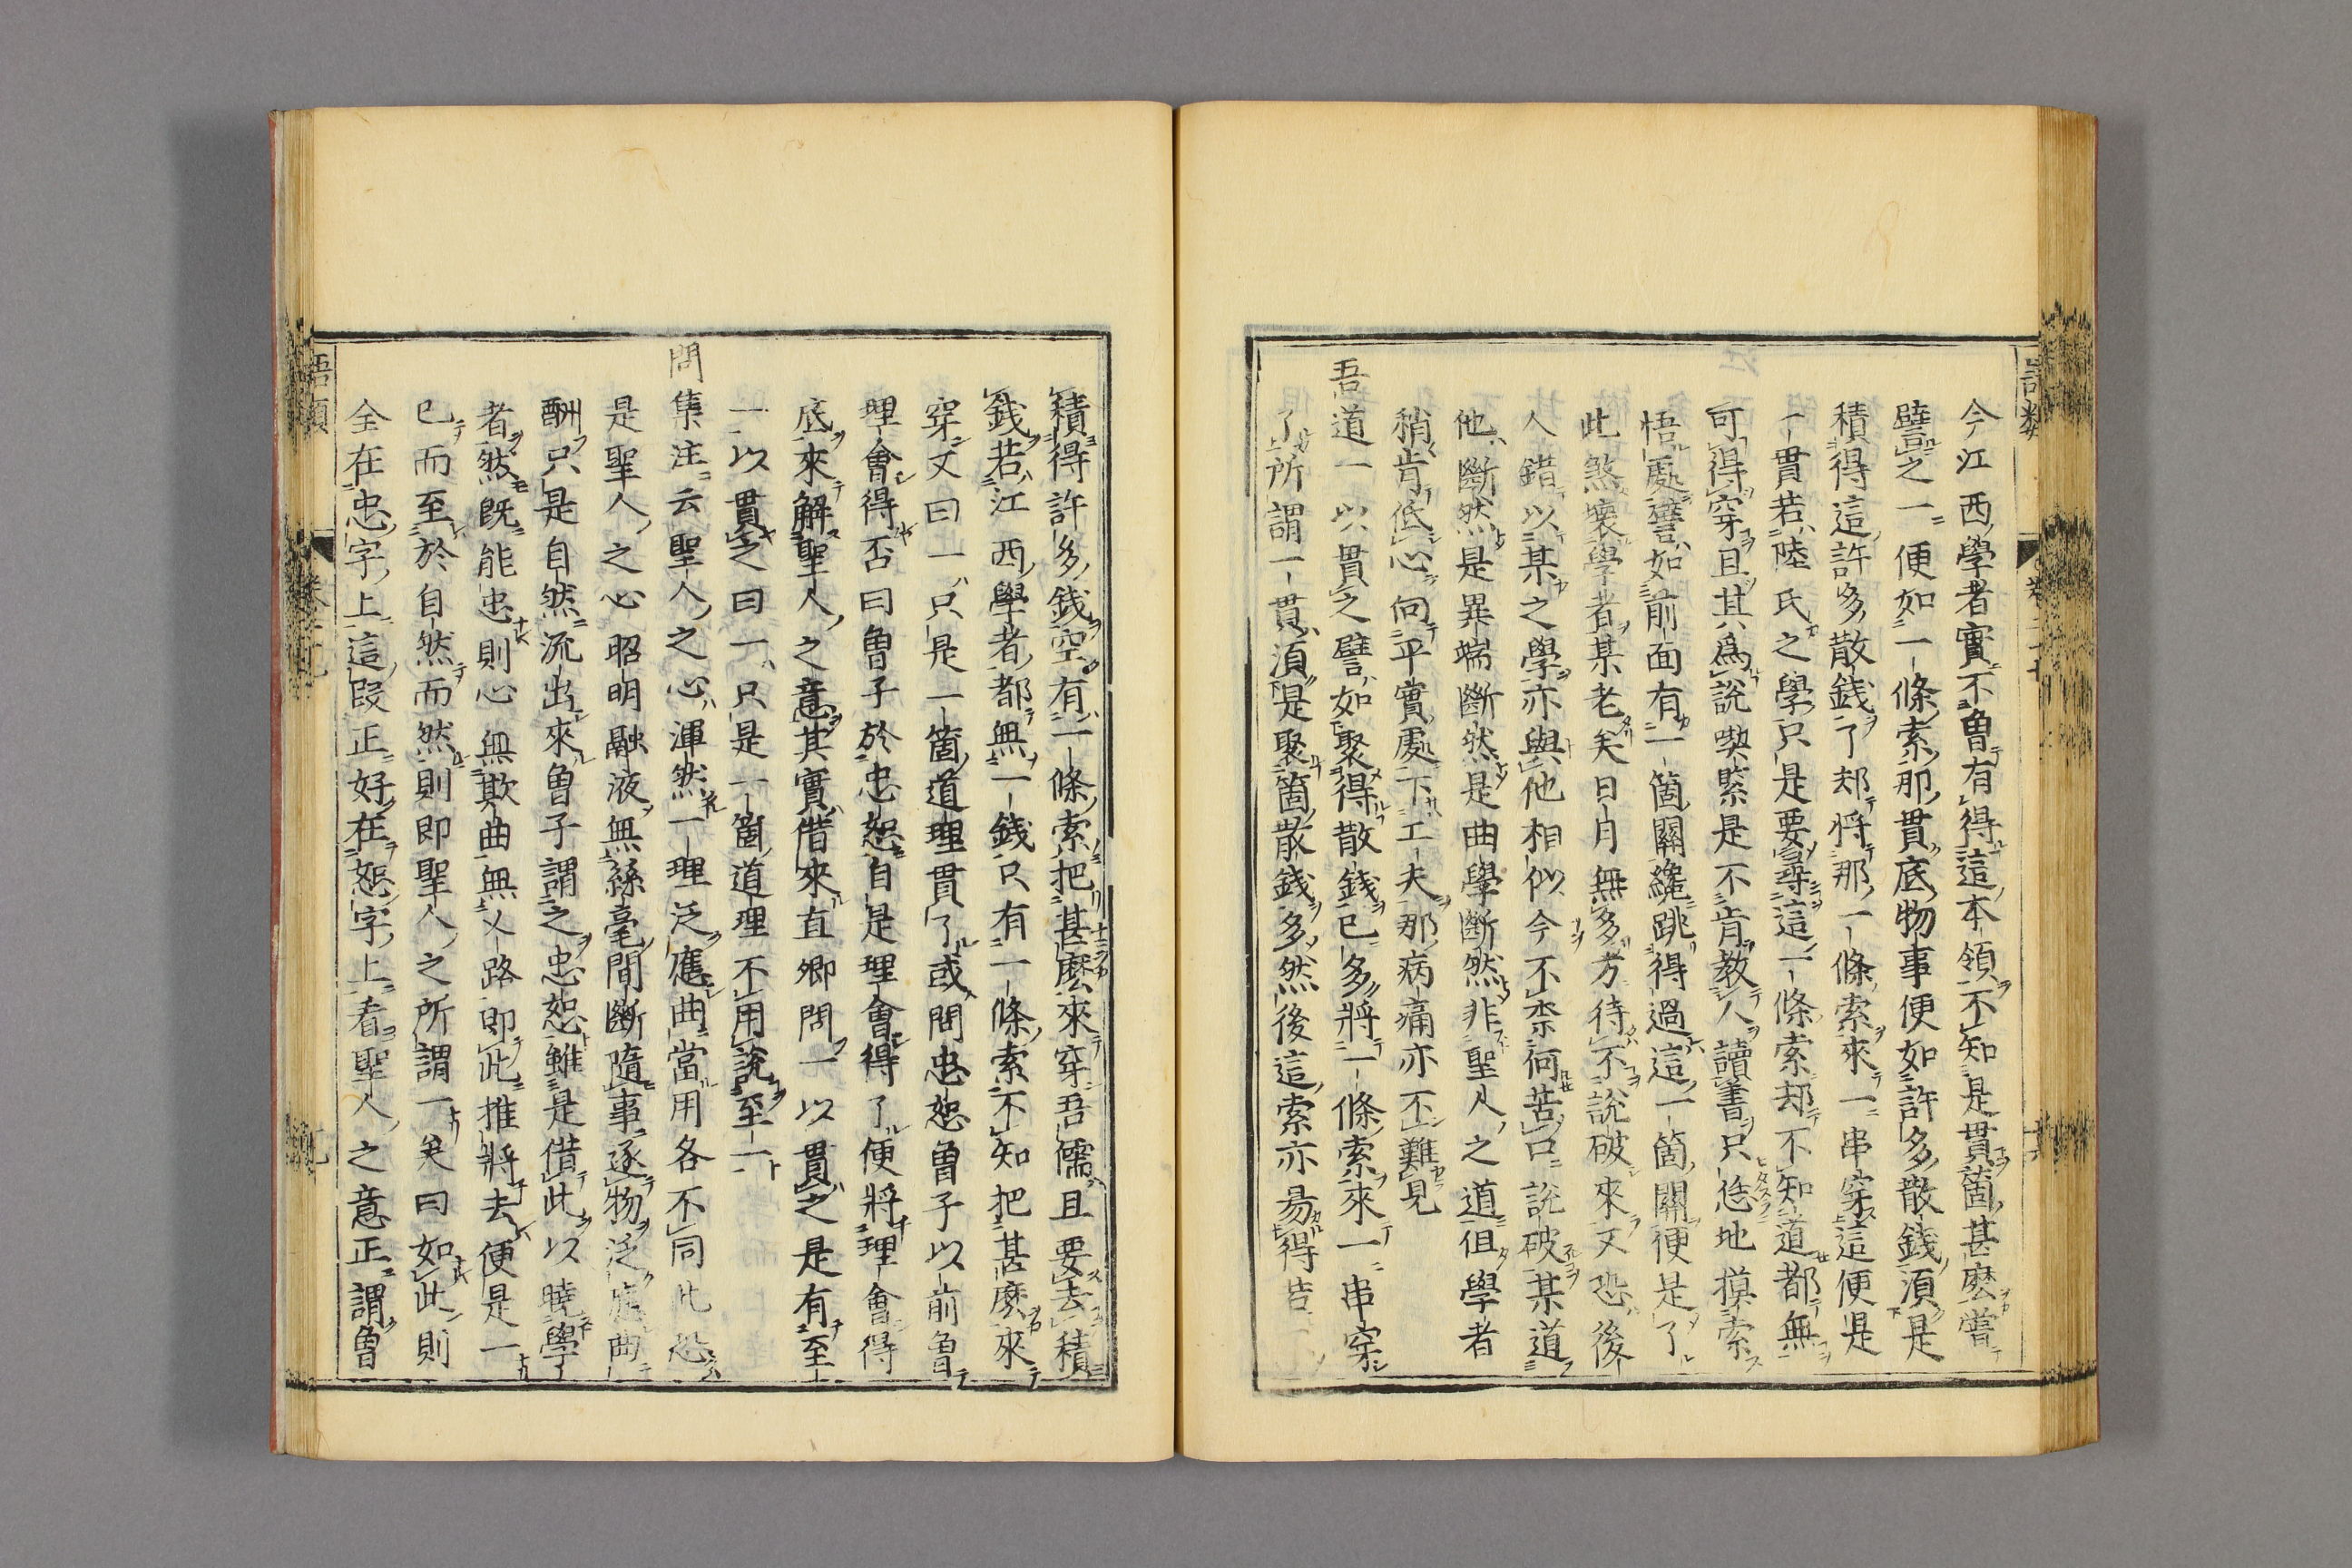 今江西學者實不曽有得這本領不知是貫箇甚麽嘗
譬之一便如一條索那貫底物事便如許多散錢須是
積得這許多散錢了却將那一條索來一串穿這便是
一貫若陸氏之學只是要尋這一條索却不知道都無
可得穿且其爲說喫緊是不肯教人讀書只恁地摸索
悟處譬如前面有一箇關纔跳得過這一箇關便是了
此煞壞學者某老矣日月無多方待不說破來又恐後
人錯以某之學亦與他相似今不柰何苦口說破某道
他斷然是異端斷然是曲學斷然非聖人之道但學者
稍肯低心向平實處下工夫那病痛亦不難見
吾道一以貫之譬如聚得散錢已多將一條索來一串穿
了所謂一貫須是聚箇散錢多然後這索亦易得若
積得許多錢空有一條索把甚麽來穿吾儒且要去積
錢若江西學者都無一錢只有一條索不知把甚麽來
穿又曰一只是一箇道理貫了或問忠恕曽子以前曽
理會得否曰曽子於忠恕自是理會得了便將理會得
底來解聖人之意其實借來直卿問一以貫之是有至
一以貫之曰一只是一箇道理不用說至一
問集注云聖人之心渾然一理泛應曲當用各不同此恐
是聖人之心昭明融液無絲毫間斷隨事逐物泛應曲
酬只是自然流出來曽子謂之忠恕雖是借此以曉學
者然既能忠則心無欺曲無乂路即此推將去便是一
已而至於自然而然則即聖人之所謂一矣曰如此則
全在忠字上這段正好在恕字上看聖人之意正謂曽